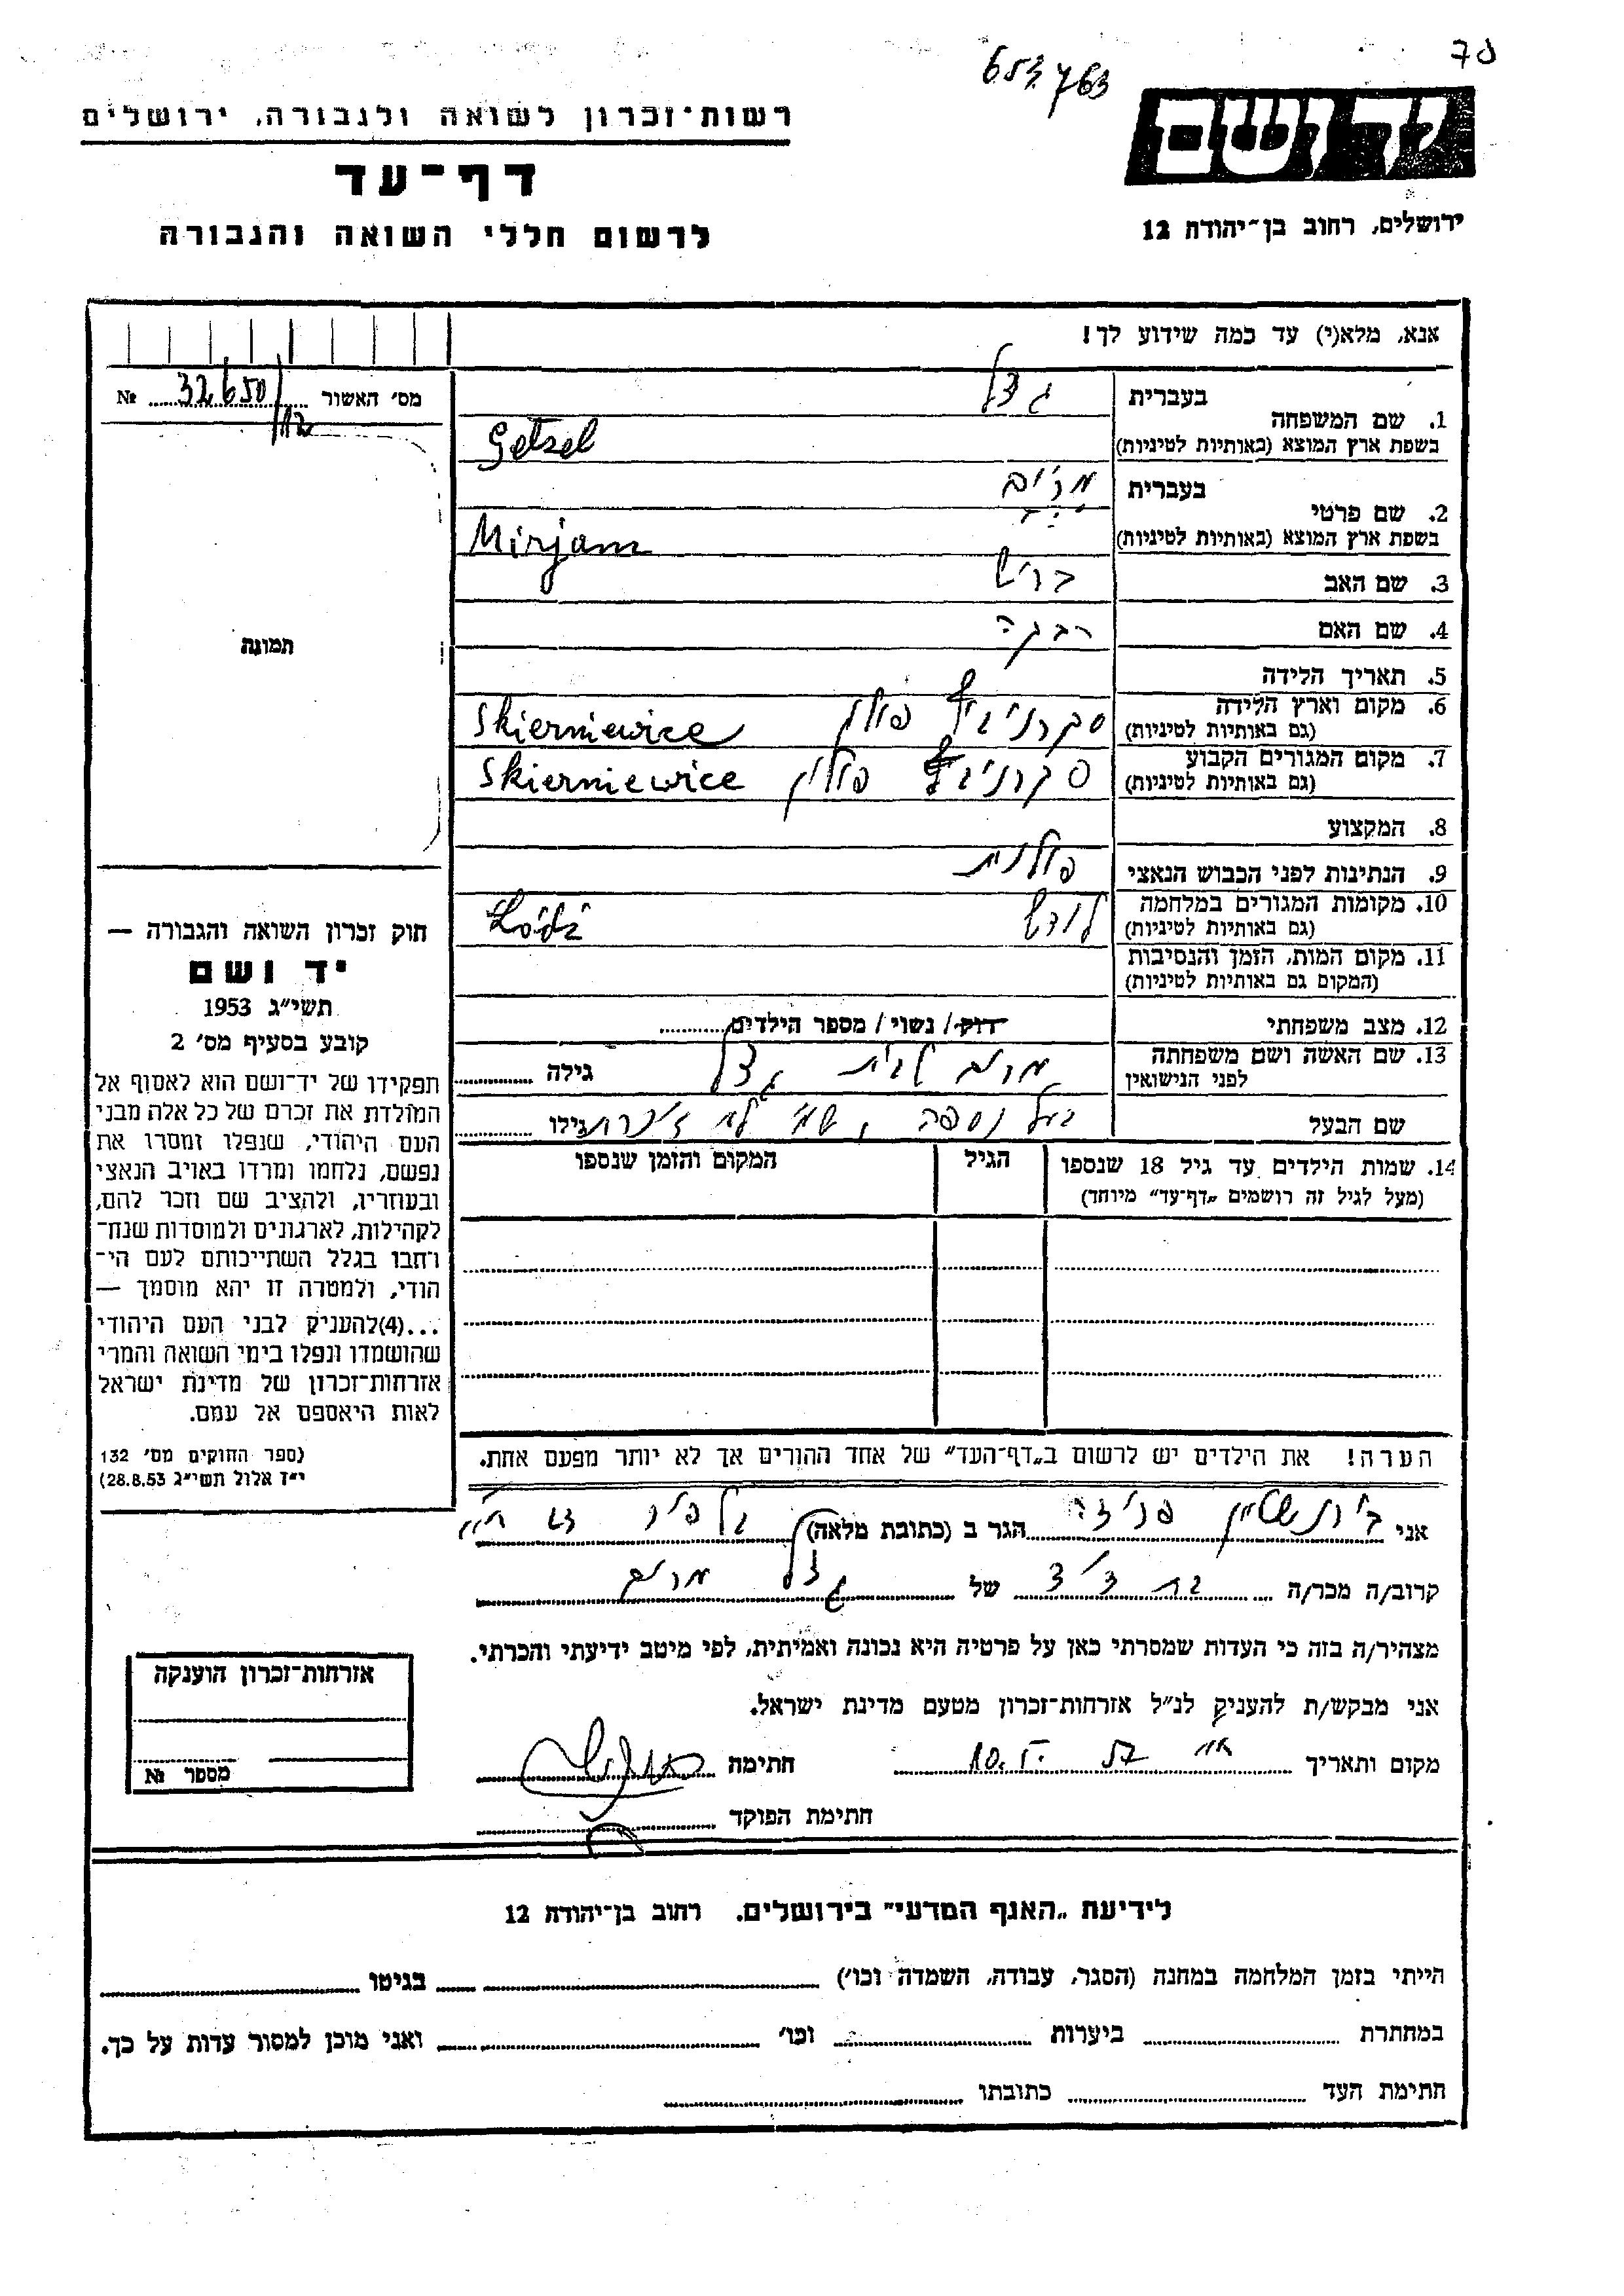 653763
70
יד ושם
ירושלים, רחוב בן־יהודה 12
רשות־זכרון לשואה ולגבורה, ירושלים
דף־עד
לרשום חללי השואה והגבורה
אנא, מלא(י) עד כמה שידוע לך!
מס׳ האשור 32650/ №
תמונה
1. שם המשפחה
בעברית גצל
בשפת ארץ המוצא (באותיות לטיניות) Getzel
2. שם פרטי
בעברית מרים
בשפת ארץ המוצא (באותיות לטיניות) Mirjam
3. שם האב בריש
4. שם האם רבקה
5. תאריך הלידה
6. מקום וארץ הלידה
(גם באותיות לטיניות) פולין Skierniewice
7. מקום המגורים הקבוע
(גם באותיות לטיניות) פולין Skierniewice
8. המקצוע
9. הנתינות לפני הכבוש הנאצי פולנית
10. מקומות המגורים במלחמה
(גם באותיות לטיניות) לודז׳ Łódź
11. מקום המות, הזמן והנסיבות
(המקום גם באותיות לטיניות)
12. מצב משפחתי רוק / נשוי / מספר הילדים
13. שם האשה ושם משפחתה
לפני הנישואין מרים לבית גצל גילה
שם הבעל בעל נספה, שמו לא זוכרת גילו
14. שמות הילדים עד גיל 18 שנספו
(מעל לגיל זה רושמים „דף־עד״ מיוחד)
הגיל
המקום והזמן שנספו
הערה! את הילדים יש לרשום ב„דף־העד״ של אחד ההורים אך לא יותר מפעם אחת.
חוק זכרון השואה והגבורה —
יד ושם
תשי״ג 1953
קובע בסעיף מס׳ 2
תפקידו של יד־ושם הוא לאסוף אל
המולדת את זכרם של כל אלה מבני
העם היהודי, שנפלו ומסרו את
נפשם, נלחמו ומרדו באויב הנאצי
ובעוזריו, ולהציב שם וזכר להם,
לקהילות, לארגונים ולמוסדות שנח־
רבו בגלל השתייכותם לעם הי־
הודי, ולמטרה זו יהא מוסמך —
...(4)להעניק לבני העם היהודי
שהושמדו ונפלו בימי השואה והמרי
אזרחות־זכרון של מדינת ישראל
לאות היאספם אל עמם.
(ספר החוקים מס׳ 132
י״ז אלול תשי״ג 28.8.53)
אני הגר ב (כתובת מלאה)
קרוב/ה מכר/ה של גצל מרים
מצהיר/ה בזה כי העדות שמסרתי כאן על פרטיה היא נכונה ואמיתית, לפי מיטב ידיעתי והכרתי.
אני מבקש/ת להעניק לנ״ל אזרחות־זכרון מטעם מדינת ישראל.
מקום ותאריך 10.V. 57 חתימה
חתימת הפוקד
אזרחות־זכרון הוענקה
מספר №
לידיעת „האגף המדעי״ בירושלים. רחוב בן־יהודה 12
הייתי בזמן המלחמה במחנה (הסגר, עבודה, השמדה וכו׳) בגיטו
במחתרת ביערות וכו׳ ואני מוכן למסור עדות על כך.
חתימת העד כתובתו